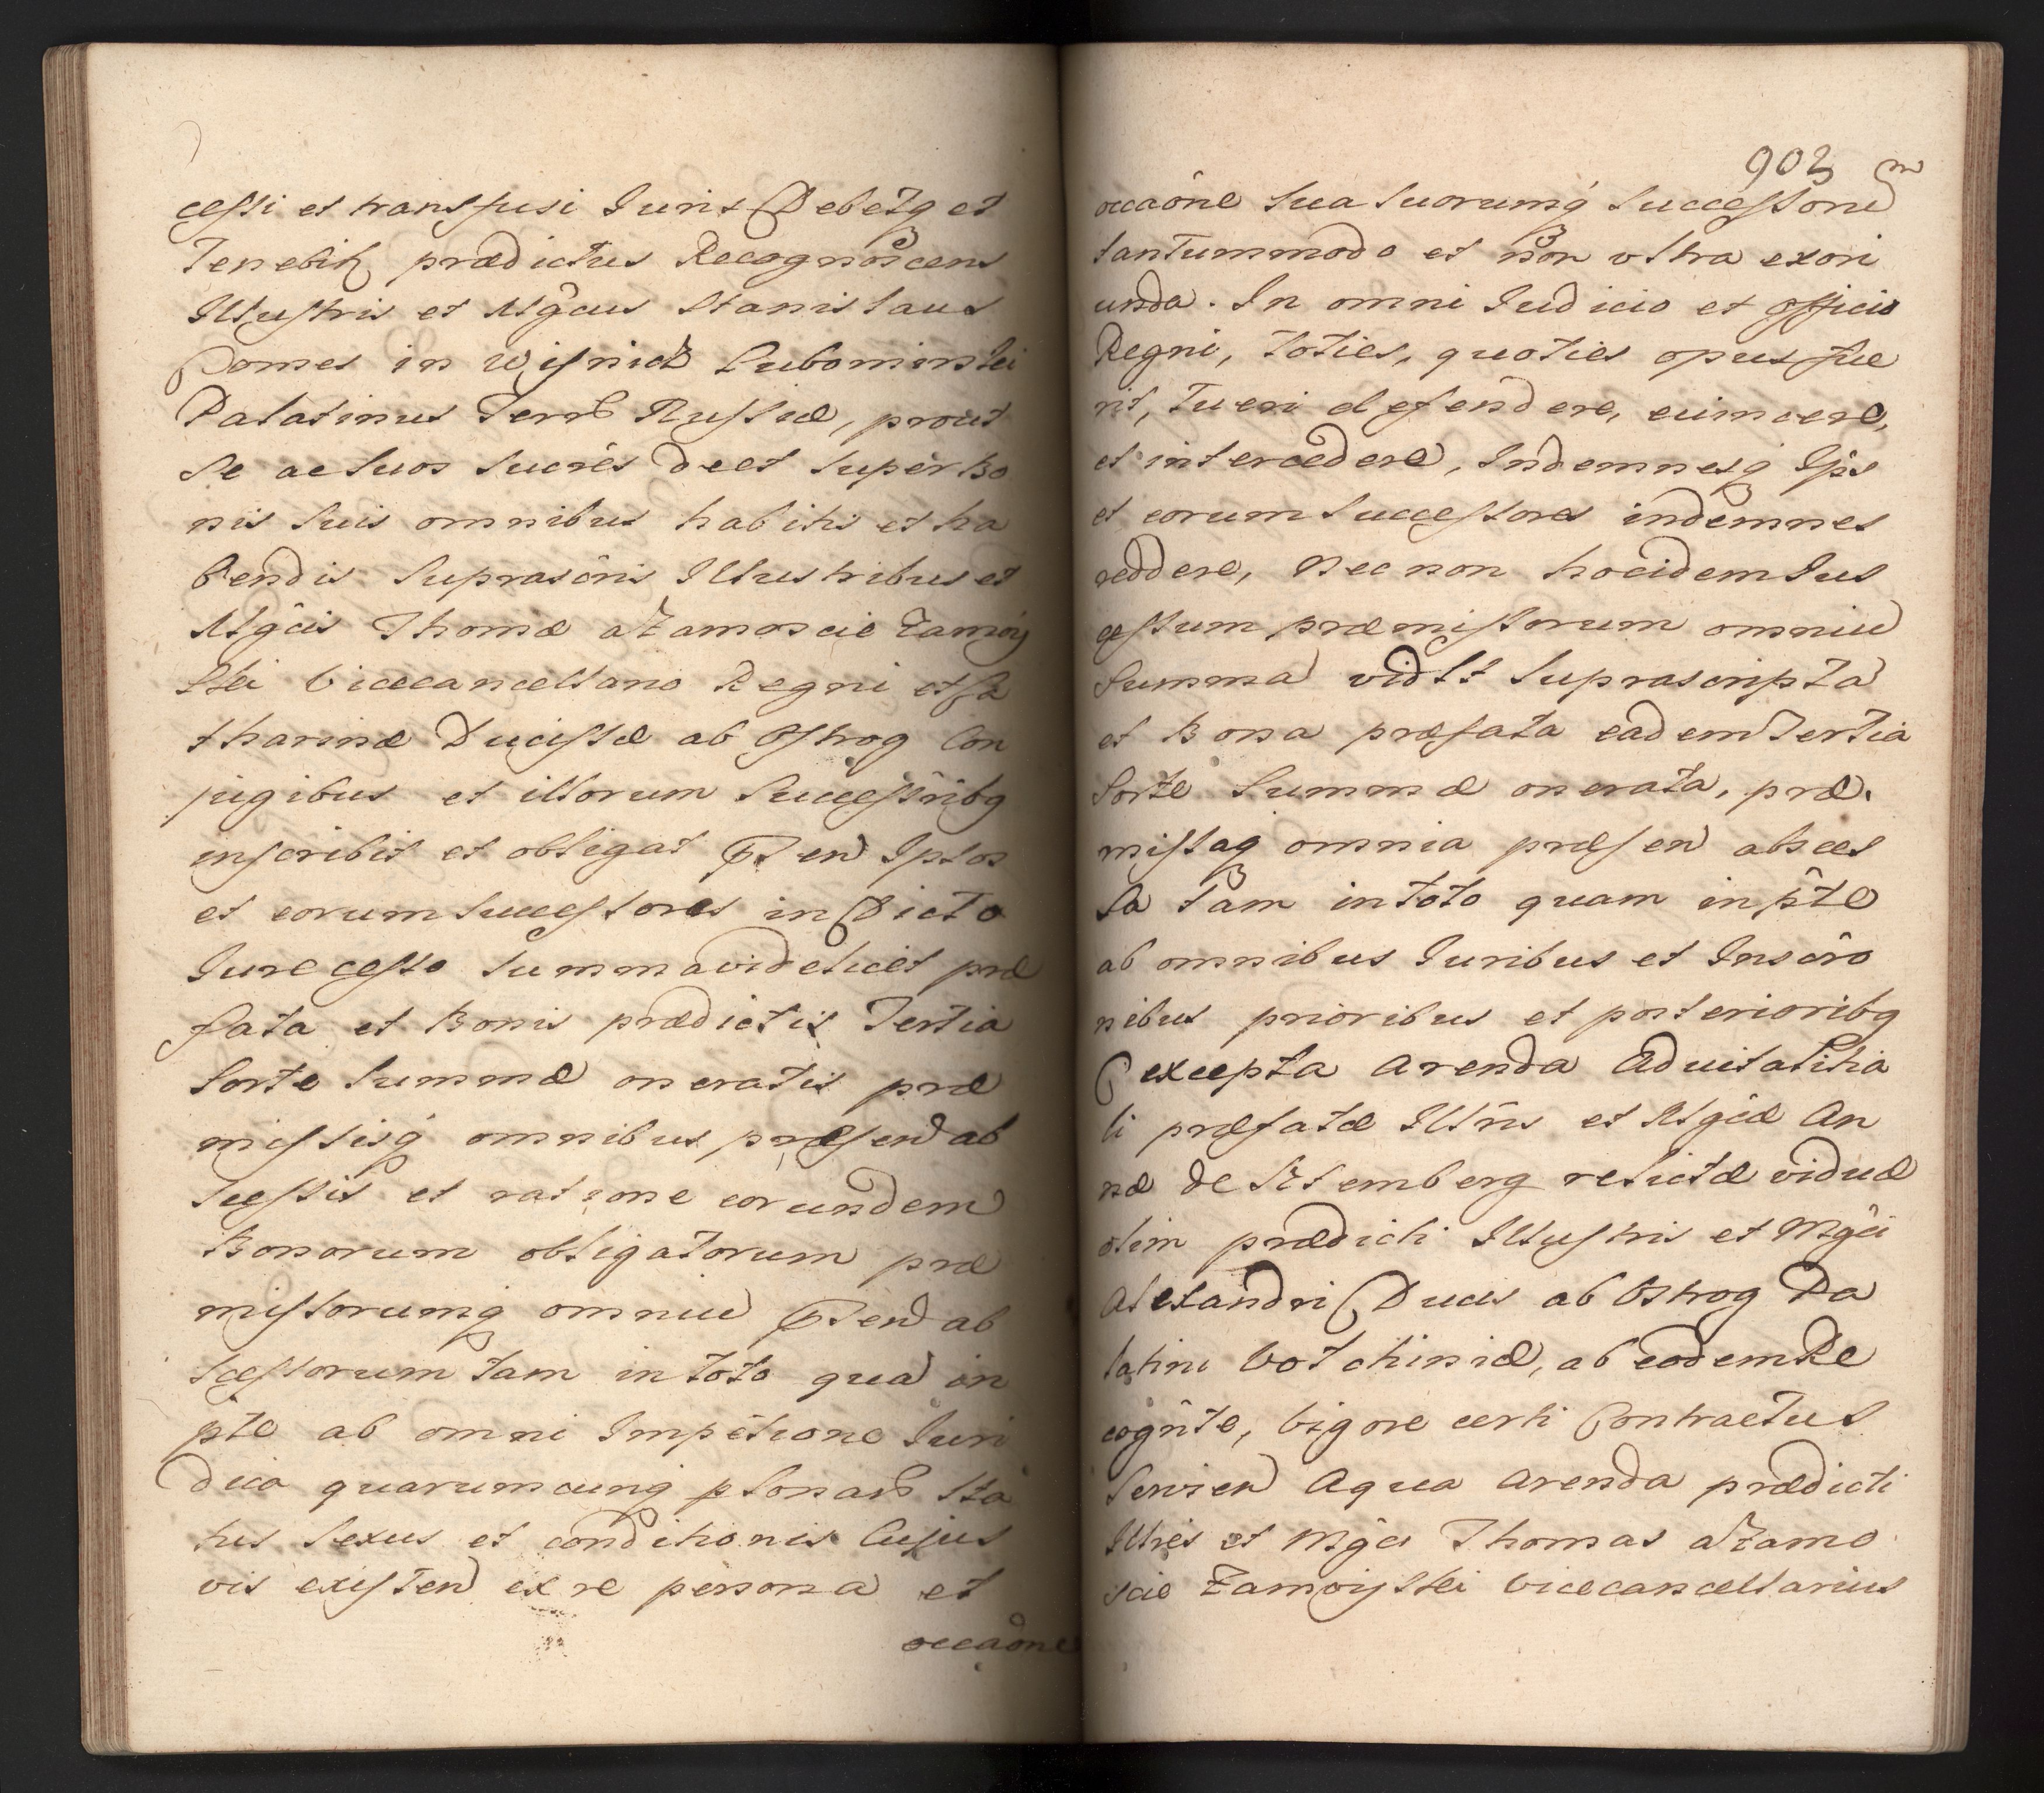 cessi et transfusi Juris Debetq et
Tenebit prædictus Recognoscens
Illustris et Mgcus Stanislaus
Comes in Wisnicz Lubomirski
Palatinus Terrß Russiæ, prout
Se ac suos sucrês deet super Bo
nis suis omnibus habitis et ha
bendis suprascris Illustribus et
Mgcis Thomæ a Zamoscie Zamoy
ski Vicecancellario Regni et Ca
tharinæ Ducissæ ab Ostrog Con
jugibus et illorum Successribq
inscribit et obligat Pten Ipsos
et eorum successores in Dicto
Jure cesso summa videlicet præ
fata et Bonis prædictis Tertia
Sorte Summæ oneratis præ
missisq omnibus præsen ab
scessis et ratione eorundem
Bonorum obligatorum præ
missorumq omniu Pten ab
scessorum tam in toto qua in
pte ab omni Impetitione Juri
dica quarumcunq psonarß Sta
tus Sexus et conditionis Cujus
vis existen ex re persona et
occaone
903
occaône sua suorumq Successoru m
tantummodo et non ultra exori
unda. In omni Judicio et officio
Regni, toties, quoties opus fue
rit, Tueri defendere, evincere,
et intercedere, Indemnesq Ips
et eorum successores indemnes
reddere, Necnon hocidem Jus
cessum præmissorum omniu
Summa vidlt suprascripta
et Bona præfata eadem Tertia
Sorte Summæ onerata, præ
missaq omnia præsen absces
sa tam in toto quam in pte
ab omnibus Juribus et Inscro
nibus prioribus et posterioribq
excepta Arenda Advitalitia
li præfatæ Illris et Mgcæ An
næ de Sztemberg relictæ viduæ
olim prædicti Illustris et Mgci
Alexandri Ducis ab Ostrog Pa
latini Volchiniæ, ab eodem Re
cognte, Vigore certi Contractus
Servien A qua Arenda prædicti
Illres et Mgci Thomas a Zamo
scie Zamoyski Vicecancellarius